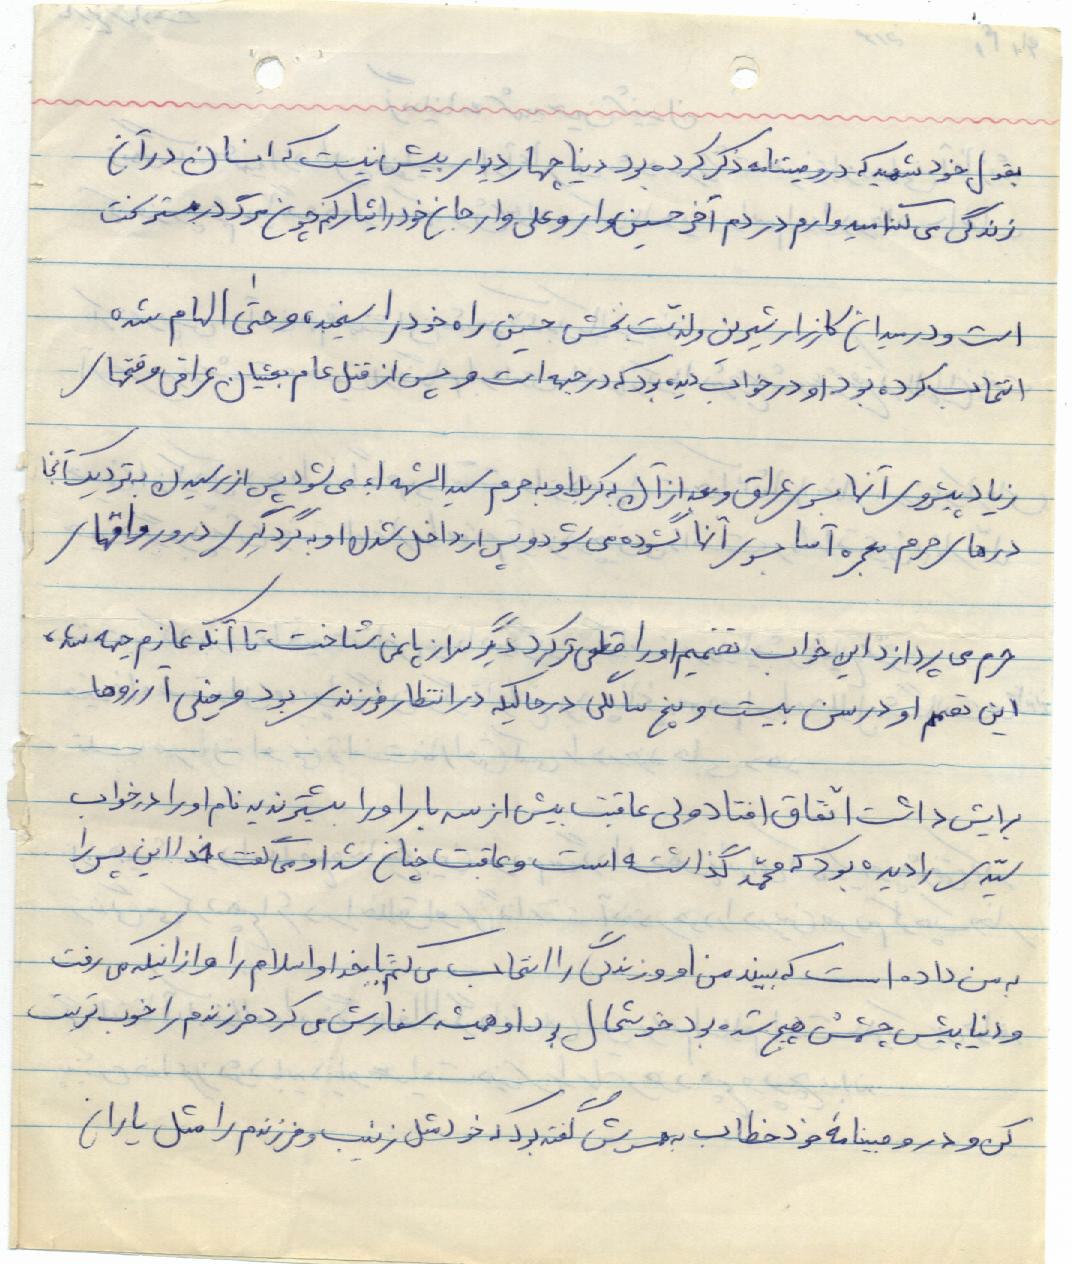 بقول خود شهید که در وصیتنامه ذکر کرده بود دنیا چهار دیوار بیش نیست که انسان در آن
زندگی می کند امیدوارم در دم آخر حسین وار و علی وار جان خود را ایثار کنم چون مرگ در بستر سخت
است و در میدان کارزار شیرین ولذت بخش حسین راه خود را سنجیده و حتی الهام شده
انتخاب کرده بود او در خواب دیده بود که در جبهه است و پس از قتل عام بعثیان عراقی و فتحهای
زیاد پیشروی آنها بسوی عراق و بعد از آن به کربلا و به حرم سید الشهداء می شود پس از رسیدن به نزدیک آنجا
درهای حرم معجزه آسا بسوی آنها گشوده می شود و پس از داخل شدن او به گردگیری در و رواقهای
حرم می پردازد این خواب تصمیم او را قطعی تر کرد دیگر سر از پا نمی شناخت تا آنکه عازم جبهه شد،
این تصمیم او در سن بیست و پنج سالگی در حالیکه در انتظار فرزندی بود و خیلی آرزوها
برایش داشت اتفاق افتاد ولی عاقبت بیش از سه بار او را بیشتر ندید نام او را در خواب
سیدی را دیده بود که محمد گذاشته است و عاقبت چنان شد او می گفت خدا این پسر را
به من داده است که ببیند من او و زندگی را انتخاب می کنم یا خدا و اسلام را و از اینکه می رفت
و دنیا پیش چشمش هیچ شده بود خوشحال بود او همیشه سفارش می کرد فرزندم را خوب تربیت
کن و در وصیتنامهٔ خود خطاب به همسرش گفته بود که خود مثل زینب و فرزندم را مثل یاران